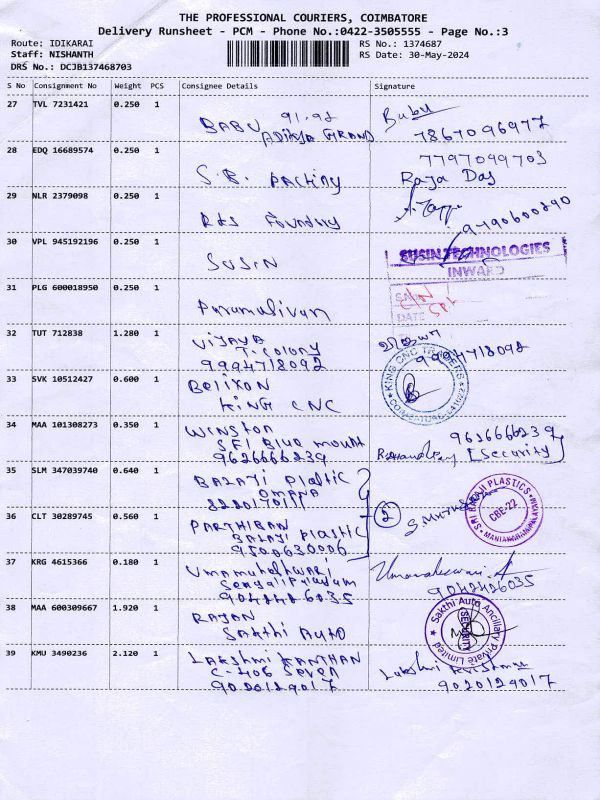 THE PROFESSIONAL COURIERS, COIMBATORE
Delivery Runsheet - PCM - Phone No.:0422-3505555 - Page No.:3
Route: IDIKARAI RS No.: 1374687
Staff: NISHANTH RS Date: 30-May-2024
DRS No.: DCJB137468703
S No Consignment No Weight PCS Consignee Details Signature
27 TVL 7231421 0.250 1
BABU 91.92 Babu
Aditya GRAND 7867096977
28 EDQ 16689574 0.250 1
7797099703
S.B. Packing Raja Das
29 NLR 2379098 0.250 1
R&S Foundry
30 VPL 945192196 0.250 1
SUSIN SUSIN TECHNOLOGIES
INWARD
31 PLG 600018950 0.250 1
S.NO
DATE
Paramasivan
32 TUT 712838 1.280 1
VIJAYA விஜயா
T. Colony
9994718092 9994718092
33 SVK 10512427 0.600 1
Belixon KING CNC TRADERS
KING CNC
34 MAA 101308273 0.350 1
WINSTON
SFI Blue mount 9626666239
9626666239 [Security]
35 SLM 347039740 0.640 1
BALAJI Plastic
OMANA
SRI BALAJI PLASTICS
CBE-22
MANIAKARANPALAYAM
36 CLT 30289745 0.560 1
2
PARTHIBAN
BALAJI Plastic
9500630006
37 KRG 4615366 0.180 1
Umamaheshwari Umamaheswari.
Sengalipalayam
9042426035 9042426035
38 MAA 600309667 1.920 1
RAJAN
Sakthi Auto
Sakthi Auto Ancillary Private Limited
SECURITY
39 KMU 3490236 2.120 1
LAKSHMI KANTHAN
C-406 SEVEN
9020129017 9020129017